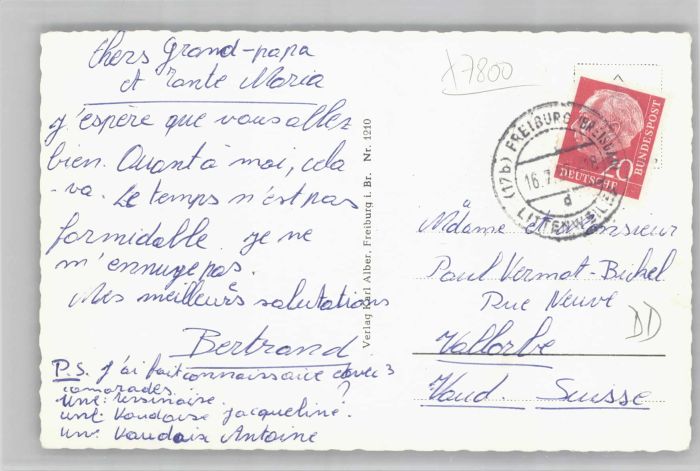 chers Grand-papa
et Tante Maria
j'espère que vous allez
bien. Quant à moi, cela
-va. Le temps n'est pas
formidable. je ne
m'ennuye pas.
Mes meilleurs salutations
Bertrand
P.S. j'ai fait connaissance avec 3
camarades.
une
une Vaudoise Jacqueline.
un Vaudois Antoine
Verlag Karl Alber, Freiburg i. Br. Nr. 1210
x7800
(17b) FREIBURG (BREISGAU)
16.7.
d
LITTENWEILER
DEUTSCHE
BUNDESPOST
20
à
Madame et Monsieur
Paul Vermot-Bichel
Rue Neuve
Vallorbe
Vaud. Suisse
DD